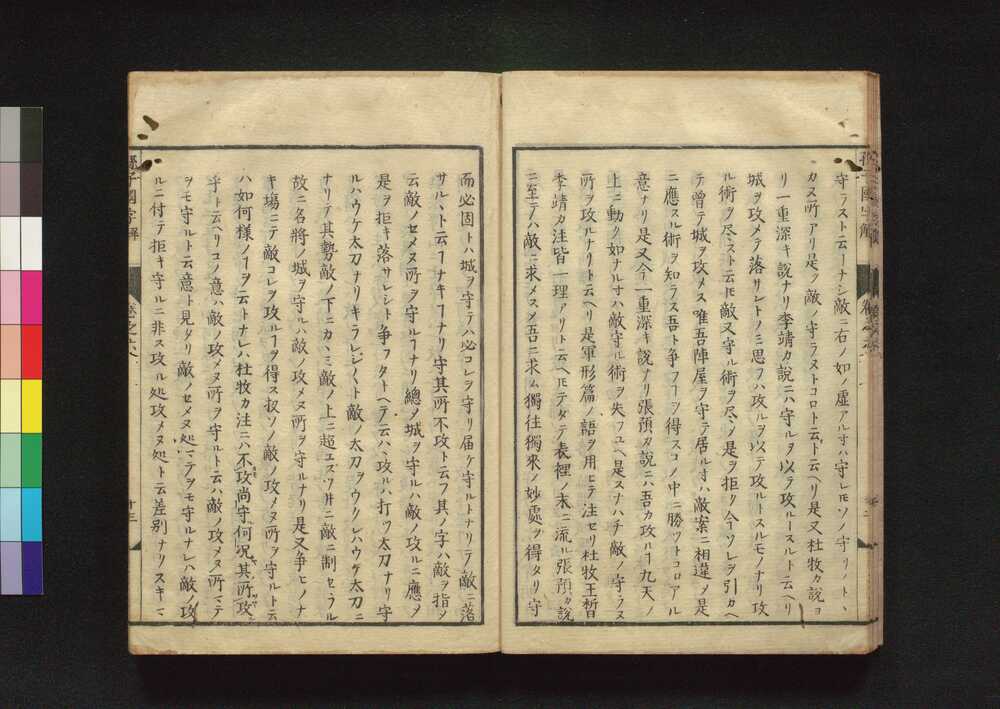 守ラスト云ーナシ敵ニ右ノ如ノ虚アル寸ハ守レ𪜈ソノ守リノト丶
カス所アリ是ヲ敵ノ守ラストコロト云ト云ヘリ是又杜牧カ說ヨ
リ一重深キ說ナリ李靖カ說ニハ守ルヲ以テ攻ルースルト云ヘリ
城ヲ攻メテ落サレトノミ思フハ攻ルヲ以テ攻ルトスルモノナリ攻
ル術ヲ尽スト云𪜈敵又守ル術ヲ尽メ是ヲ拒リ今ソレヲ引カヘ
テ曽テ城ヲ攻メス唯吾陣屋ヲ守テ居ル寸ハ敵案ニ相違メ是
ニ應スル術ヲ知ラス吾ト争フーヲ得スコノ中ニ勝ヲトコロアル
意ナリ是又今一重深キ說ナリ張預カ說ニハ吾カ攻ルー九天ノ
上ニ動ノ如ナル寸ハ敵守ル術ヲ失フユヘ是スナハチ敵ノ守ラス
所ヲ攻ルナリト云ヘリ是軍形篇ノ語ヲ用ヒテ注セリ杜牧王晳
李靖カ注皆一理アリト云ヘ𪜈テタテ表裡ノ末ニ流ル張預カ說
ニ至テハ敵ニ求メスメ吾ニ求ム獨往獨來ノ妙處ヲ得タリ守
而必固トハ城ヲ守テハ必コレヲ守リ届ケ守ルトナリテ敵ニ落
サル丶ト云ーナキーナリ守其所不攻ト云フ其ノ字ハ敵ヲ指メ
云敵ノセメヌ所ヲ守ルーナリ總メ城ヲ守ルハ敵ノ攻ルニ應メ
是ヲ拒キ落サレシト争フタトヘテ云ハ丶攻ルハ打ツ太刀ナリ守
ルハウケ太刀ナリキラレジくト敵ノ太刀ヲウケレハウケ太刀ニ
ナリテ其勢敵ノ下ニカ丶ミ敵ノ上ニ超エズワ井ニ敵ニ制セラル
故ニ名將ノ城ヲ守ルハ敵ノ攻メヌ所ヲ守ルナリ是又争ヒノナ
キ場ニテ敵コレヲ攻ルーヲ得ス扨ソノ敵ノ攻メヌ所ヲ守ルト云
ハ如何樣ノーヲ云トナレハ杜牧カ注ニハ不攻尚守何况其所攻
乎ト云ヘリコノ意ハ敵ノ攻メヌ所ヲ守ルト云ハ敵ノ攻メヌ所マテ
ヲモ守ルト云意ト見タリ敵ノセメヌ処マテヲモ守ルナレハ敵ノ攻
ルニ付テ拒キ守ルニ非ス攻ル処攻メヌ処ト云差別ナリスキマ
孫子國字解
十三